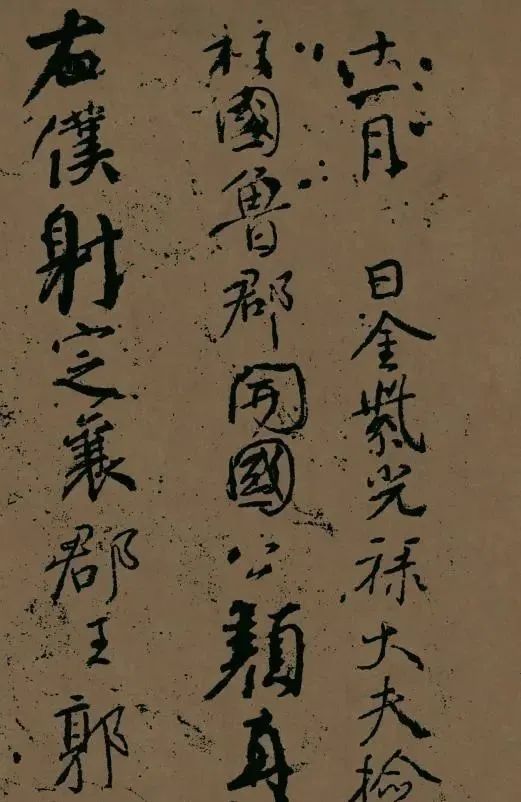 十一月 日金紫光祿大夫檢
柱國魯郡開國公顏真
右僕射定襄郡王郭